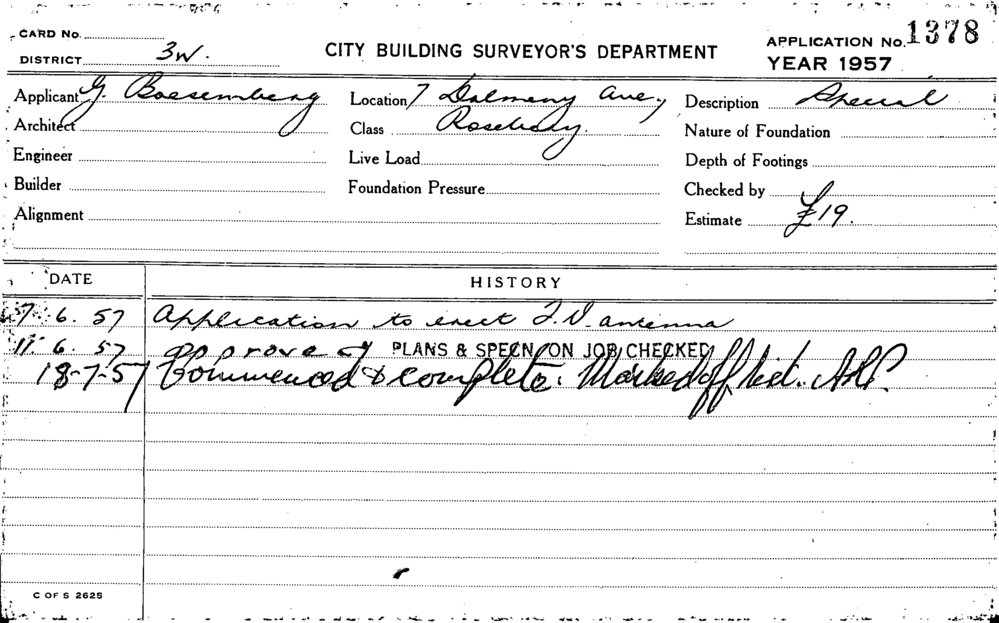 CARD No.
DISTRICT 3W.
CITY BUILDING SURVEYOR'S DEPARTMENT
APPLICATION No. 1378
YEAR 1957
Applicant G. Boesemberg
Location 7 Dalmeny Ave,
Description Special
Architect
Class Rosebery.
Nature of Foundation
Engineer
Live Load
Depth of Footings
Builder
Foundation Pressure
Checked by
Alignment
Estimate £19.
DATE
HISTORY
7. 6. 57 Application to erect T.V. antenna
11. 6. 57 approved PLANS & SPECN. ON JOB CHECKED
18-7-57 Commenced & complete. Marked off list.
C OF S 2625